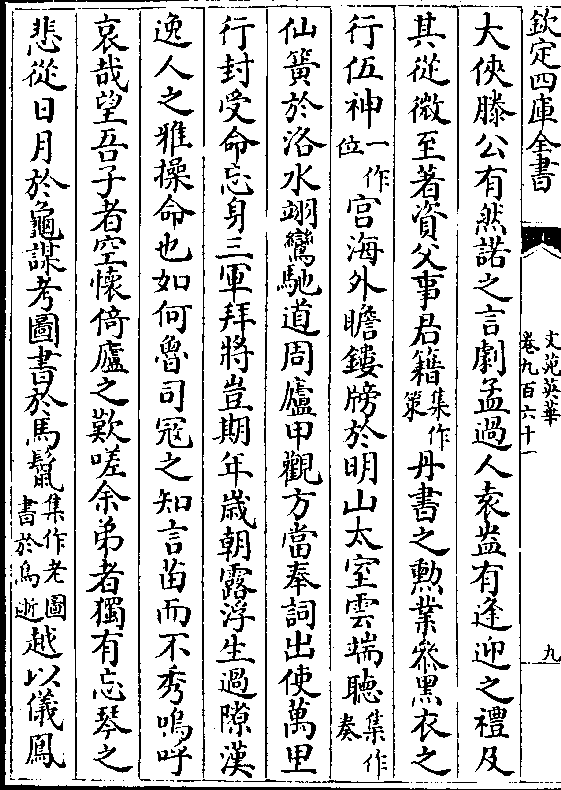 欽定四庫全書
文苑英華
卷九百六十一
九
大俠滕公有然諾之言劇孟過人袁盎有逢迎之禮及
其從微至著資父事君籍集作策丹書之勲業叅黒衣之
行伍神一作位宫海外瞻鏤牓於明山太室雲端聽集作奏
仙簧於洛水翊鸞馳道周廬甲觀方當奉詞出使萬里
行封受命忘身三軍拜將豈期年歳朝露浮生過隙漢
逸人之雅操命也如何魯司冦之知言苗而不秀嗚呼
哀哉望吾子者空懷倚廬之歎嗟余弟者獨有忘琴之
悲從日月於龜謀考圖書於馬鬛集作老圖書於烏逝越以儀鳳